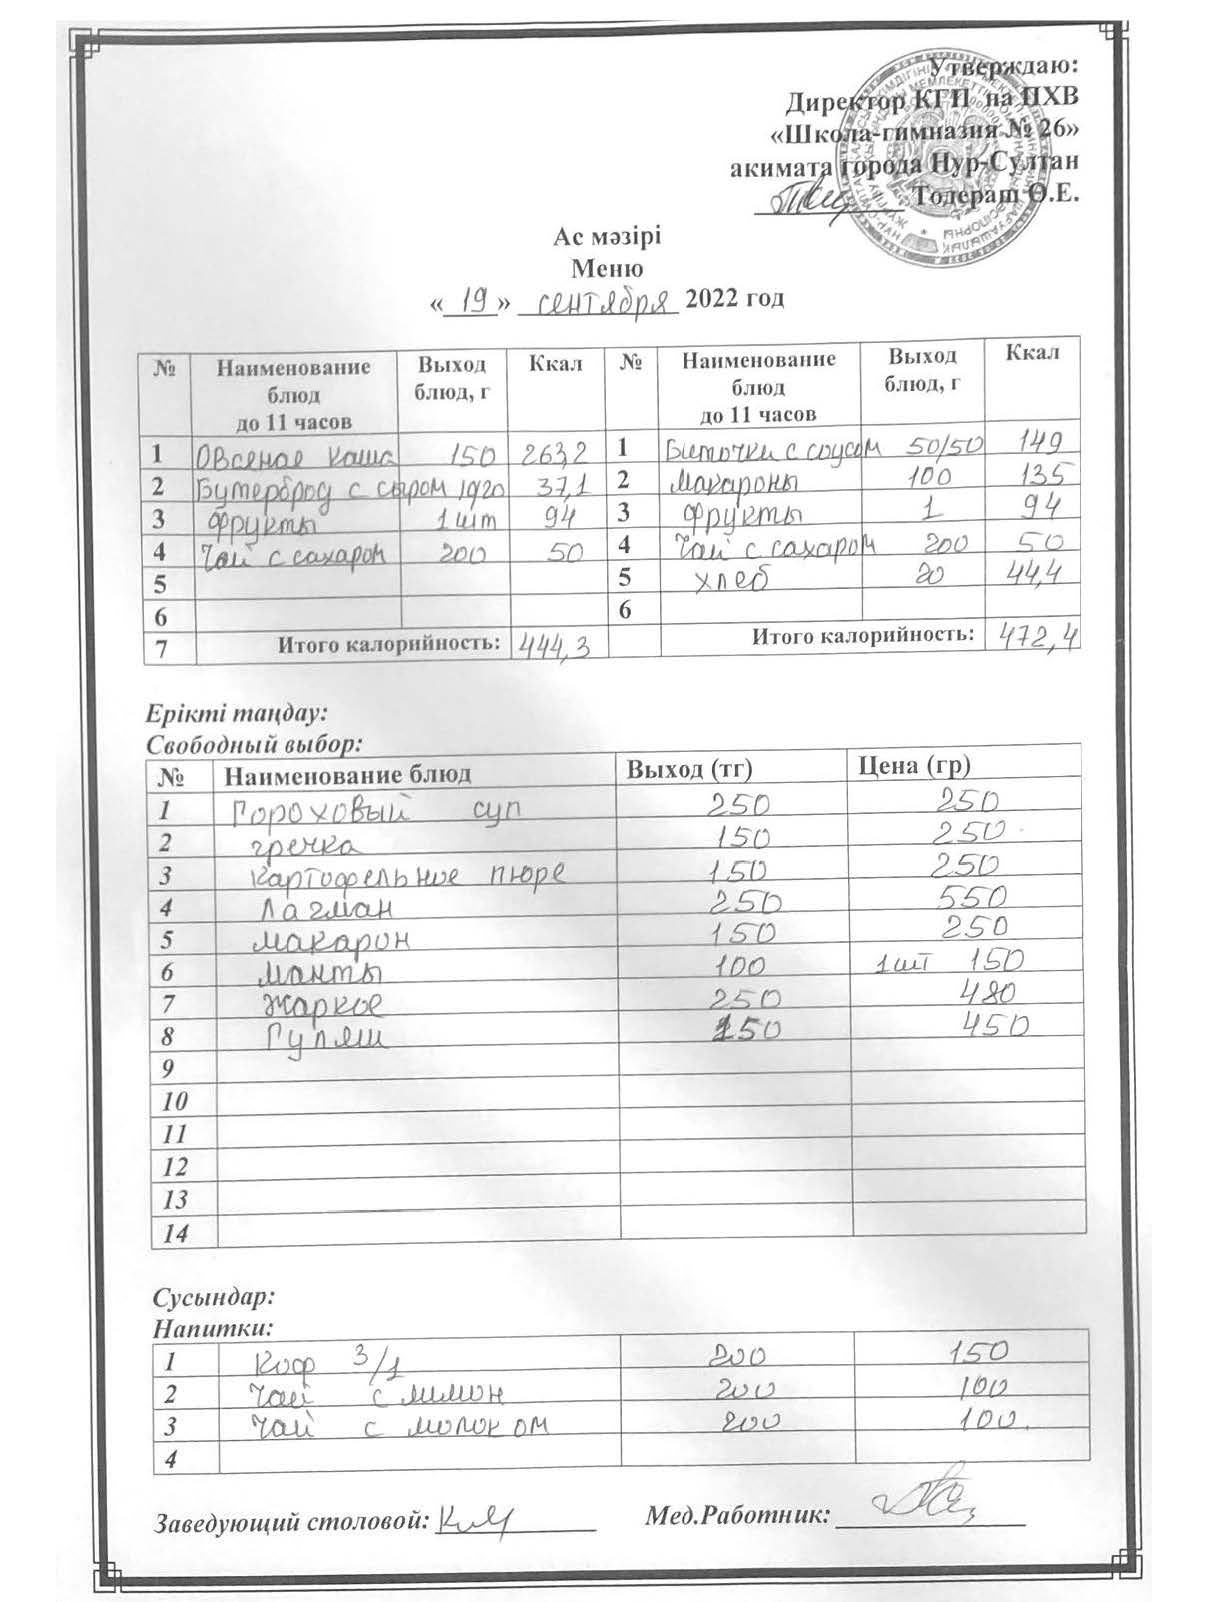 Утверждаю:
Директор КГП на ПХВ
«Школа-гимназия № 26»
акимата города Нур-Султан
Тодераш О.Е.
Ас мәзірі
Меню
«19» сентября 2022 год
№ Наименование блюд до 11 часов Выход блюд, г Ккал № Наименование блюд до 11 часов Выход блюд, г Ккал
1 Овсеная каша 150 263,2 1 Биточки с соусом 50/50 149
2 Бутерброд с сыром 10/20 37,1 2 Макароны 100 135
3 Фрукты 1 шт 94 3 Фрукты 1 94
4 Чай с сахаром 200 50 4 Чай с сахаром 200 50
5 5 хлеб 20 44,4
6 6
7 Итого калорийность: 444,3 Итого калорийность: 472,4
Ерікті таңдау:
Свободный выбор:
№ Наименование блюд Выход (тг) Цена (гр)
1 Гороховый суп 250 250
2 гречка 150 250
3 картофельное пюре 150 250
4 Лагман 250 550
5 макарон 150 250
6 манты 100 1 шт 150
7 жаркое 250 480
8 Гуляш 150 450
9
10
11
12
13
14
Сусындар:
Напитки:
1 Коф 3/1 200 150
2 Чай с лимон 200 100
3 Чай с молоком 200 100
4
Заведующий столовой: Мед.Работник: